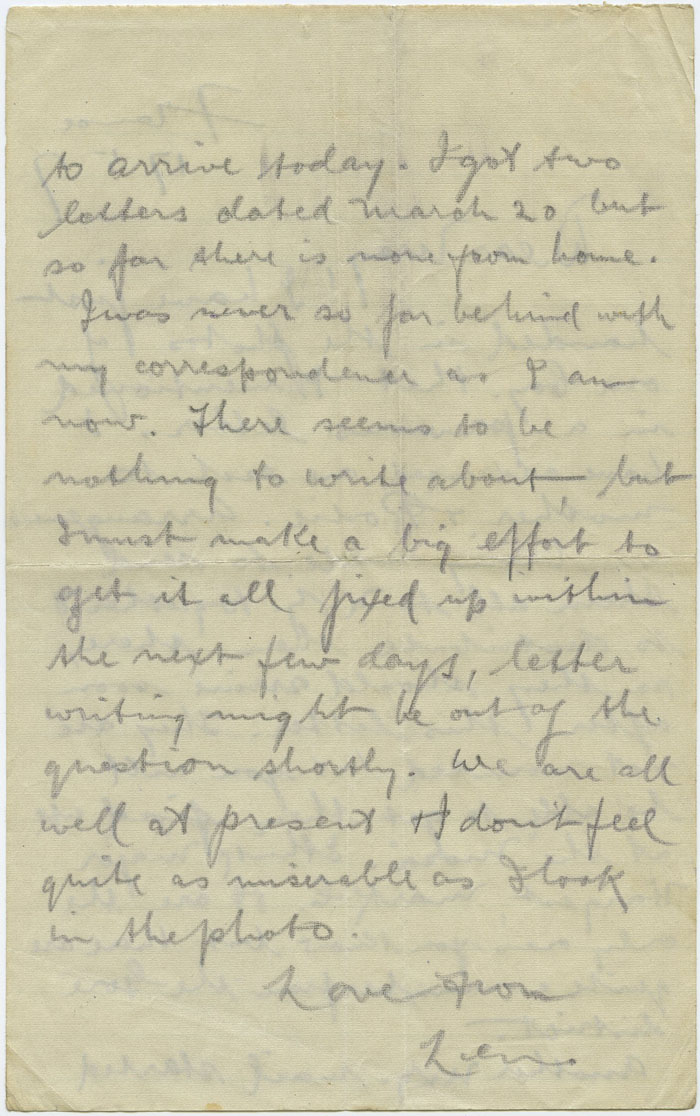 to arrive today. I got two
letters dated March 20 but
so far there is none from home.
I was never so far behind with
my correspondence as I am
now. There seems to be
nothing to write about, but
I must make a big effort to
get it all fixed up within
the next few days, letter
writing might be out of the
question shortly. We are all
well at present & I don't feel
quite as miserable as I look
in the photo.
Love from
Len.